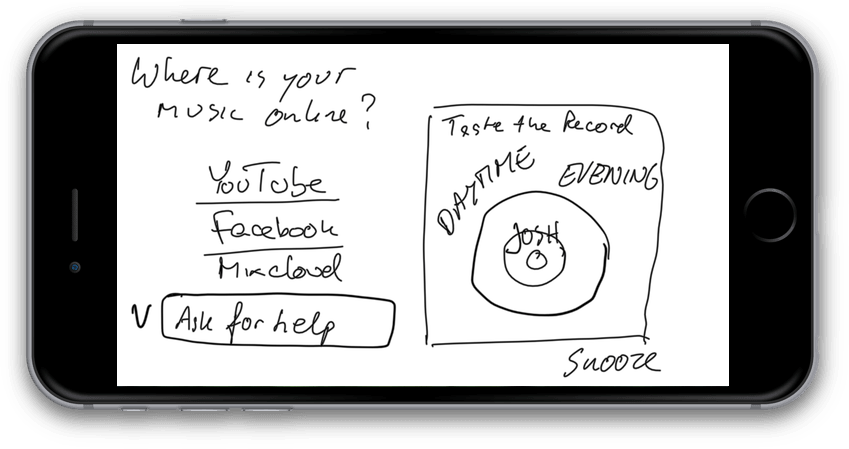 Where is your
music online?
YouTube
Facebook
Mixcloud
V Ask for help
Taste the Record
DAYTIME
EVENING
JOSH
Snooze